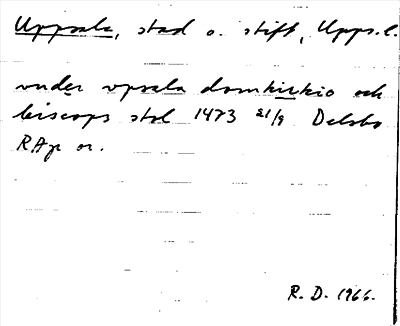 Uppsala, stad o. stift, Upps.l.
vnder vpsala domkirkio och
biscops stol 1473 21/9 Delsbo
RAp or.
R. D. 1966.